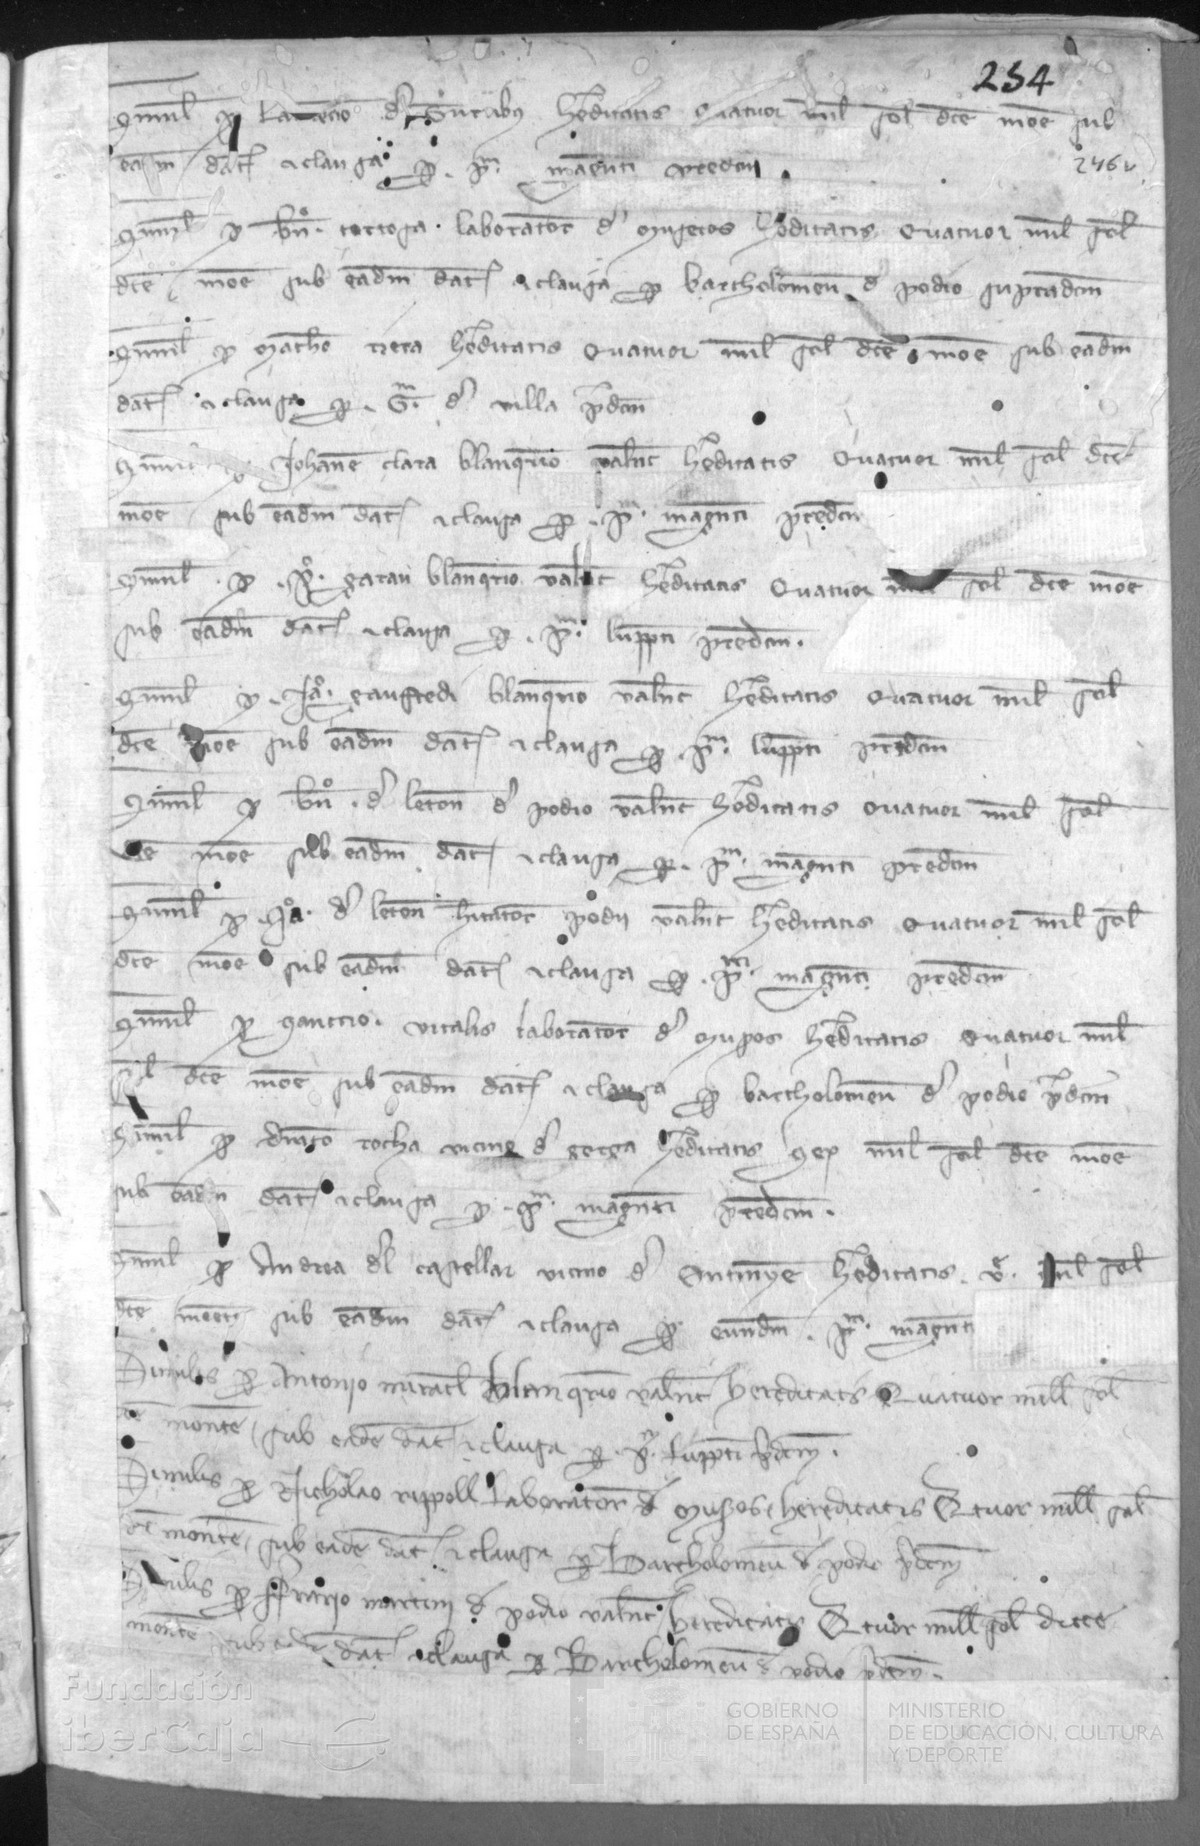 254
Simil p de heditatis Quatuor mil sol dce moe sub
eadm dat clauga p. pm. magnti predcm
246v
Simil p bnº. tortosa. laborator d heditatis Quatuor mil sol
dce moe sub eadm dat clauga p bartholomeu d podio supradcm
Simil p Matheo heditatis Quatuor mil sol dce moe sub eadm
dat clauga p. Gm. d villa pdcm
Simil p Johane clara blanqrio valnt heditatis Quatuor mil sol dce
moe sub eadm dat clauga p. pm. magnti predcm
Simil. p. pº. garau blanqrio valnt heditatis Quatuor mil sol dce moe
sub eadm dat clauga p. pm. luppti predcm.
Simil p. Jaº. gaufredi blanqrio valnt heditatis Quatuor mil sol
dce moe sub eadm dat clauga p pm. luppti predcm
Simil p bnº. d leton d podio valnt heditatis Quatuor mil sol
dce moe sub eadm dat clauga p. pm. magnti predcm
Simil p. d leton hitator podii valnt heditatis Quatuor mil sol
dce moe sub eadm dat clauga p. pm. magnti predcm
Simil p vitalis laborator d heditatis Quatuor mil
sol dce moe sub eadm dat clauga p bartholomeu d podio pdcm
Simil p rocha vicino d gerga heditatis sex mil sol dce moe
sub eadm dat clauga p. pm. magnti predcm.
Simil p Andrea del castellar vicino d Ontinyen heditatis. mil sol
dce monete sub eadm dat clauga p eundm. pm. magnti
Similis p Antonio miracl blanqrio valnt hereditatis Quatuor mill sol
dce monete, sub eade dat clauga p. pm. luppti pdcm.
Similis p Nicholao rippoll laborator d Muyos hereditatis Qtuor mill sol
dce monete, sub eade dat clauga p Bartholomeu d podio pdcm
Similis p ffrario martini d podio valnt. hereditatis Qtuor mill sol dicte
monete sub eade dat clauga p Bartholomeu d podio pdcm.
Fundación
iberCaja
GOBIERNO
DE ESPAÑA
MINISTERIO
DE EDUCACIÓN, CULTURA
Y DEPORTE